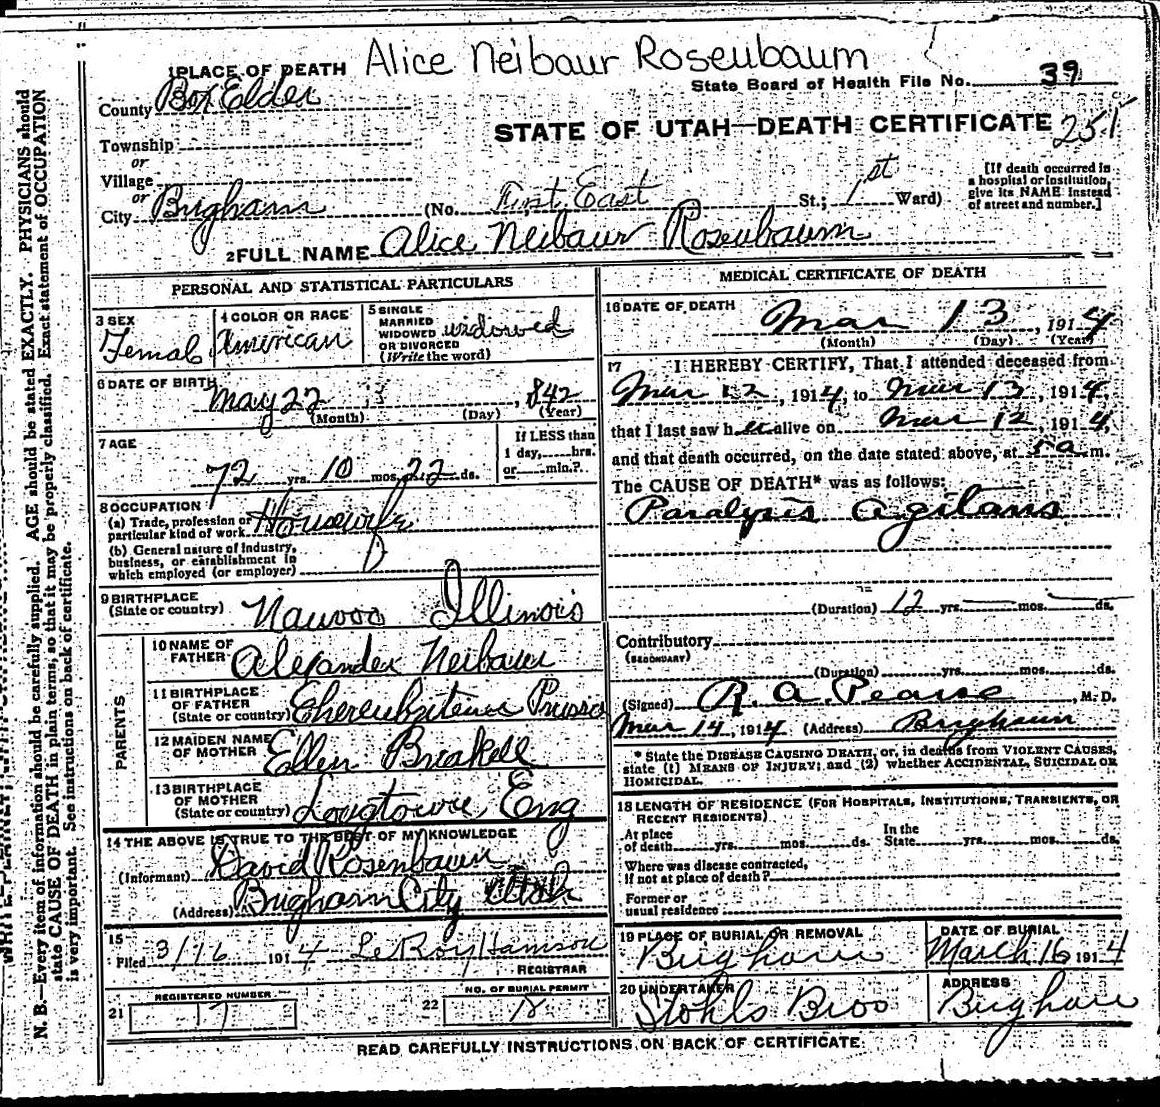 Alice Neibaur Rosenbaum
1 PLACE OF DEATH
State Board of Health File No. 39
County Box Elder
STATE OF UTAH—DEATH CERTIFICATE 251
Township
or
Village
or
City Brigham (No. First East St.; 1st Ward)
[If death occurred in a hospital or institution, give its NAME instead of street and number.]
2 FULL NAME Alice Neibaur Rosenbaum
PERSONAL AND STATISTICAL PARTICULARS
3 SEX Female
4 COLOR OR RACE American
5 SINGLE MARRIED WIDOWED OR DIVORCED (Write the word) widowed
6 DATE OF BIRTH May 22, 842
(Month) (Day) (Year)
7 AGE 72 yrs. 10 mos. 22 ds.
If LESS than 1 day, hrs. or min.?
8 OCCUPATION
(a) Trade, profession or particular kind of work Housewife
(b) General nature of industry, business, or establishment in which employed (or employer)
9 BIRTHPLACE (State or country) Nauvoo Illinois
PARENTS
10 NAME OF FATHER Alexander Neibaur
11 BIRTHPLACE OF FATHER (State or country) Prussia
12 MAIDEN NAME OF MOTHER Ellen Breakell
13 BIRTHPLACE OF MOTHER (State or country) Eng
14 THE ABOVE IS TRUE TO THE BEST OF MY KNOWLEDGE
(Informant) David Rosenbaum
(Address) Brigham City Utah
15 Filed 3/16 1914 LeRoy Hamson
REGISTRAR
21 REGISTERED NUMBER 17
22 NO. OF BURIAL PERMIT
MEDICAL CERTIFICATE OF DEATH
16 DATE OF DEATH Mar 13, 1914
(Month) (Day) (Year)
17 I HEREBY CERTIFY, That I attended deceased from
Mar 12, 1914, to Mar 13, 1914,
that I last saw her alive on Mar 12, 1914,
and that death occurred, on the date stated above, at 5 a m.
The CAUSE OF DEATH* was as follows:
Paralysis agitans
(Duration) 12 yrs. mos. ds.
Contributory
(SECONDARY)
(Duration) yrs. mos. ds.
(Signed) R. A. Pearse, M. D.
Mar 14, 1914 (Address) Brigham
* State the DISEASE CAUSING DEATH, or, in deaths from VIOLENT CAUSES, state (1) MEANS OF INJURY; and (2) whether ACCIDENTAL, SUICIDAL OR HOMICIDAL.
18 LENGTH OF RESIDENCE (FOR HOSPITALS, INSTITUTIONS, TRANSIENTS, OR RECENT RESIDENTS)
At place of death yrs. mos. ds. In the State yrs. mos. ds.
Where was disease contracted, if not at place of death?
Former or usual residence
19 PLACE OF BURIAL OR REMOVAL Brigham
DATE OF BURIAL March 16 1914
20 UNDERTAKER Stohls Bros
ADDRESS Brigham
READ CAREFULLY INSTRUCTIONS ON BACK OF CERTIFICATE.
N. B.—Every item of information should be carefully supplied. AGE should be stated EXACTLY. PHYSICIANS should
state CAUSE OF DEATH in plain terms, so that it may be properly classified. Exact statement of OCCUPATION
is very important. See instructions on back of certificate.